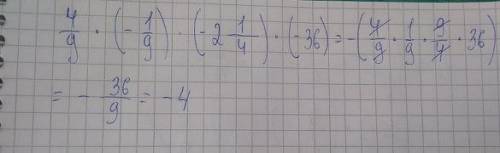 4/9 · (- 1/9) · (-2 1/4) · (-36) = -(4/9 · 1/9 · 9/4 · 36)
= - 36/9 = -4